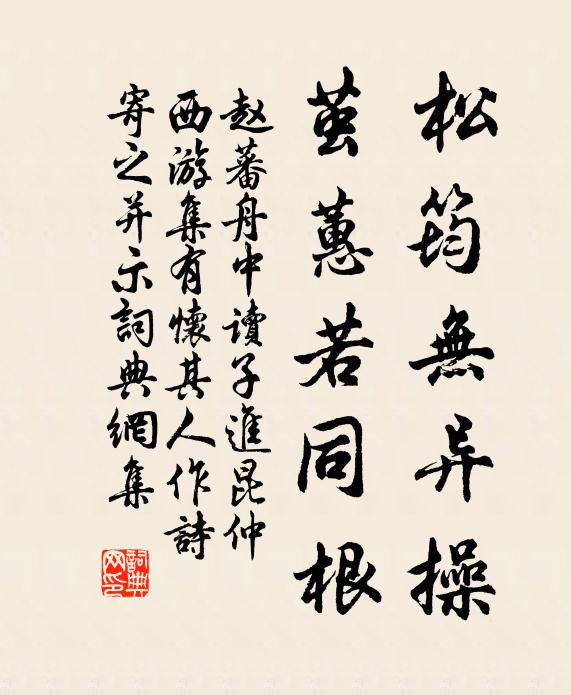 松筠無异操
茝蕙若同根
赵蕃舟中讀子進昆仲
西游集有懷其人作詩
寄之并示詞典網集
詞典网印